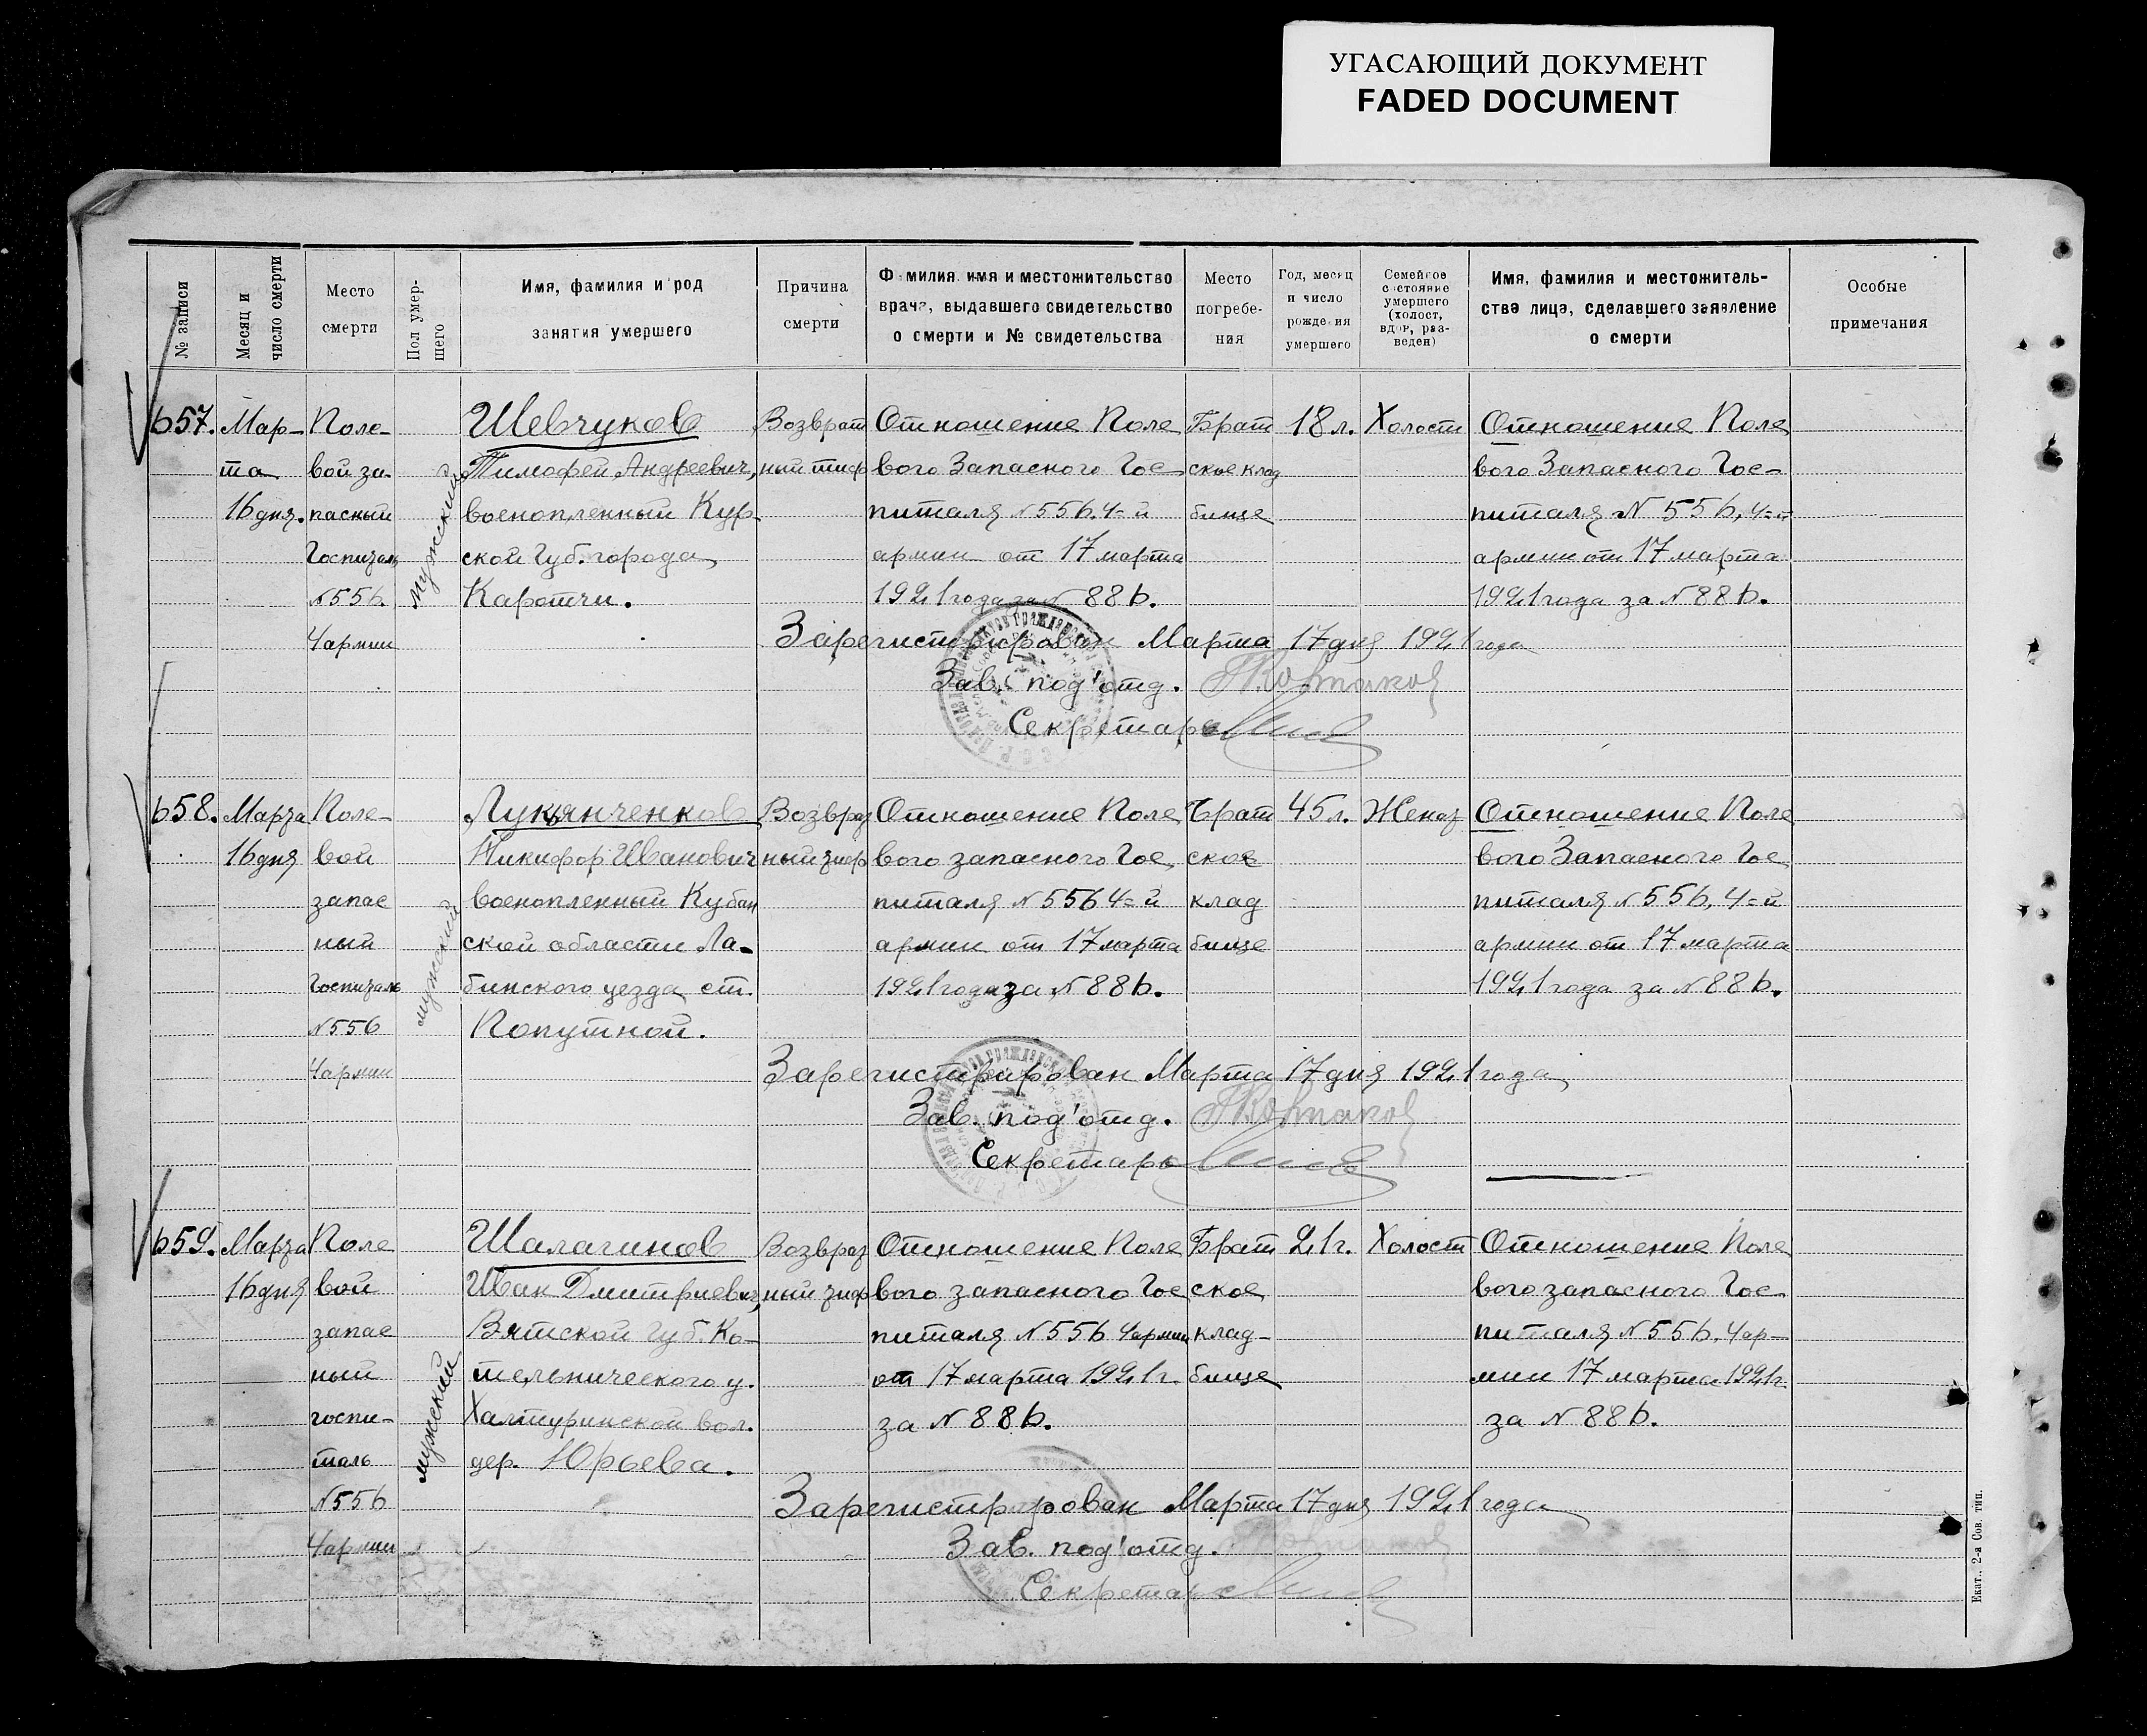 УГАСАЮЩИЙ ДОКУМЕНТ
FADED DOCUMENT
№ записи
Месяц и
число смерти
Место
смерти
Пол умер-
шего
Имя, фамилия и род
занятия умершего
Причина
смерти
Фамилия, имя и местожительство
врача, выдавшего свидетельство
о смерти и № свидетельства
Место
погребе-
ния
Год, месяц
и число
рождения
умершего
Семейное
состояние
умершего
(холост,
вдов, раз-
веден)
Имя, фамилия и местожитель-
ство лица, сделавшего заявление
о смерти
Особые
примечания
657.
Мар-
та
16 дня.
Поле-
вой за-
пасный
Госпиталь
№ 556.
4 армии
мужский
Шевчуков
Тимофей Андреевич,
военопленный Кур-
ской Губ. города
Каротчи.
Возврат
ный тиф
Отношение Поле
вого Запасного Гос-
питаля № 556. 4=й
армии от 17 марта
1921 года за № 886.
Брат
ское клад
бище
18 л.
Холост
Отношение Поле
вого Запасного Гос-
питаля № 556, 4=й
армии от 17 марта
1921 года за № 886.
Зарегистрирован Марта 17 дня 1921 года
Зав. под'отд.
Секретарь
658.
Марта
16 дня
Поле-
вой
запас
ный
Госпиталь
№ 556
4 армии
мужский
Лукянченков
Никифор Иванович
военопленный Кубан
ской области Ла-
бинского уезда ст.
Попутной.
Возврат
ный тиф
Отношение Поле
вого запасного Гос
питаля № 556 4=й
армии от 17 марта
1921 года за № 886.
Брат
ское
клад
бище
45 л.
Женат
Отношение Поле
вого Запасного Гос
питаля № 556, 4=й
армии от 17 марта
1921 года за № 886.
Зарегистрирован Марта 17 дня 1921 года
Зав. под'отд.
Секретарь
659.
Марта
16 дня
Поле
вой
запас
ный
госпи-
таль
№ 556
4 армии
мужский
Шалагинов
Иван Дмитриевич,
Вятской Губ. Ко-
тельнического у.
Халтуринской вол.
дер. Юрьева.
Возврат
ный тиф
Отношение Поле
вого запасного Гос
питаля № 556 4 армии
от 17 марта 1921 г.
за № 886.
Брат
ское
клад-
бище
21 г.
Холост
Отношение Поле
вого запасного Гос
питаля № 556. 4 ар-
мии 17 марта 1921 г.
за № 886.
Зарегистрирован Марта 17 дня 1921 года
Зав. под'отд.
Секретарь
Екат., 2-я Сов. тип.